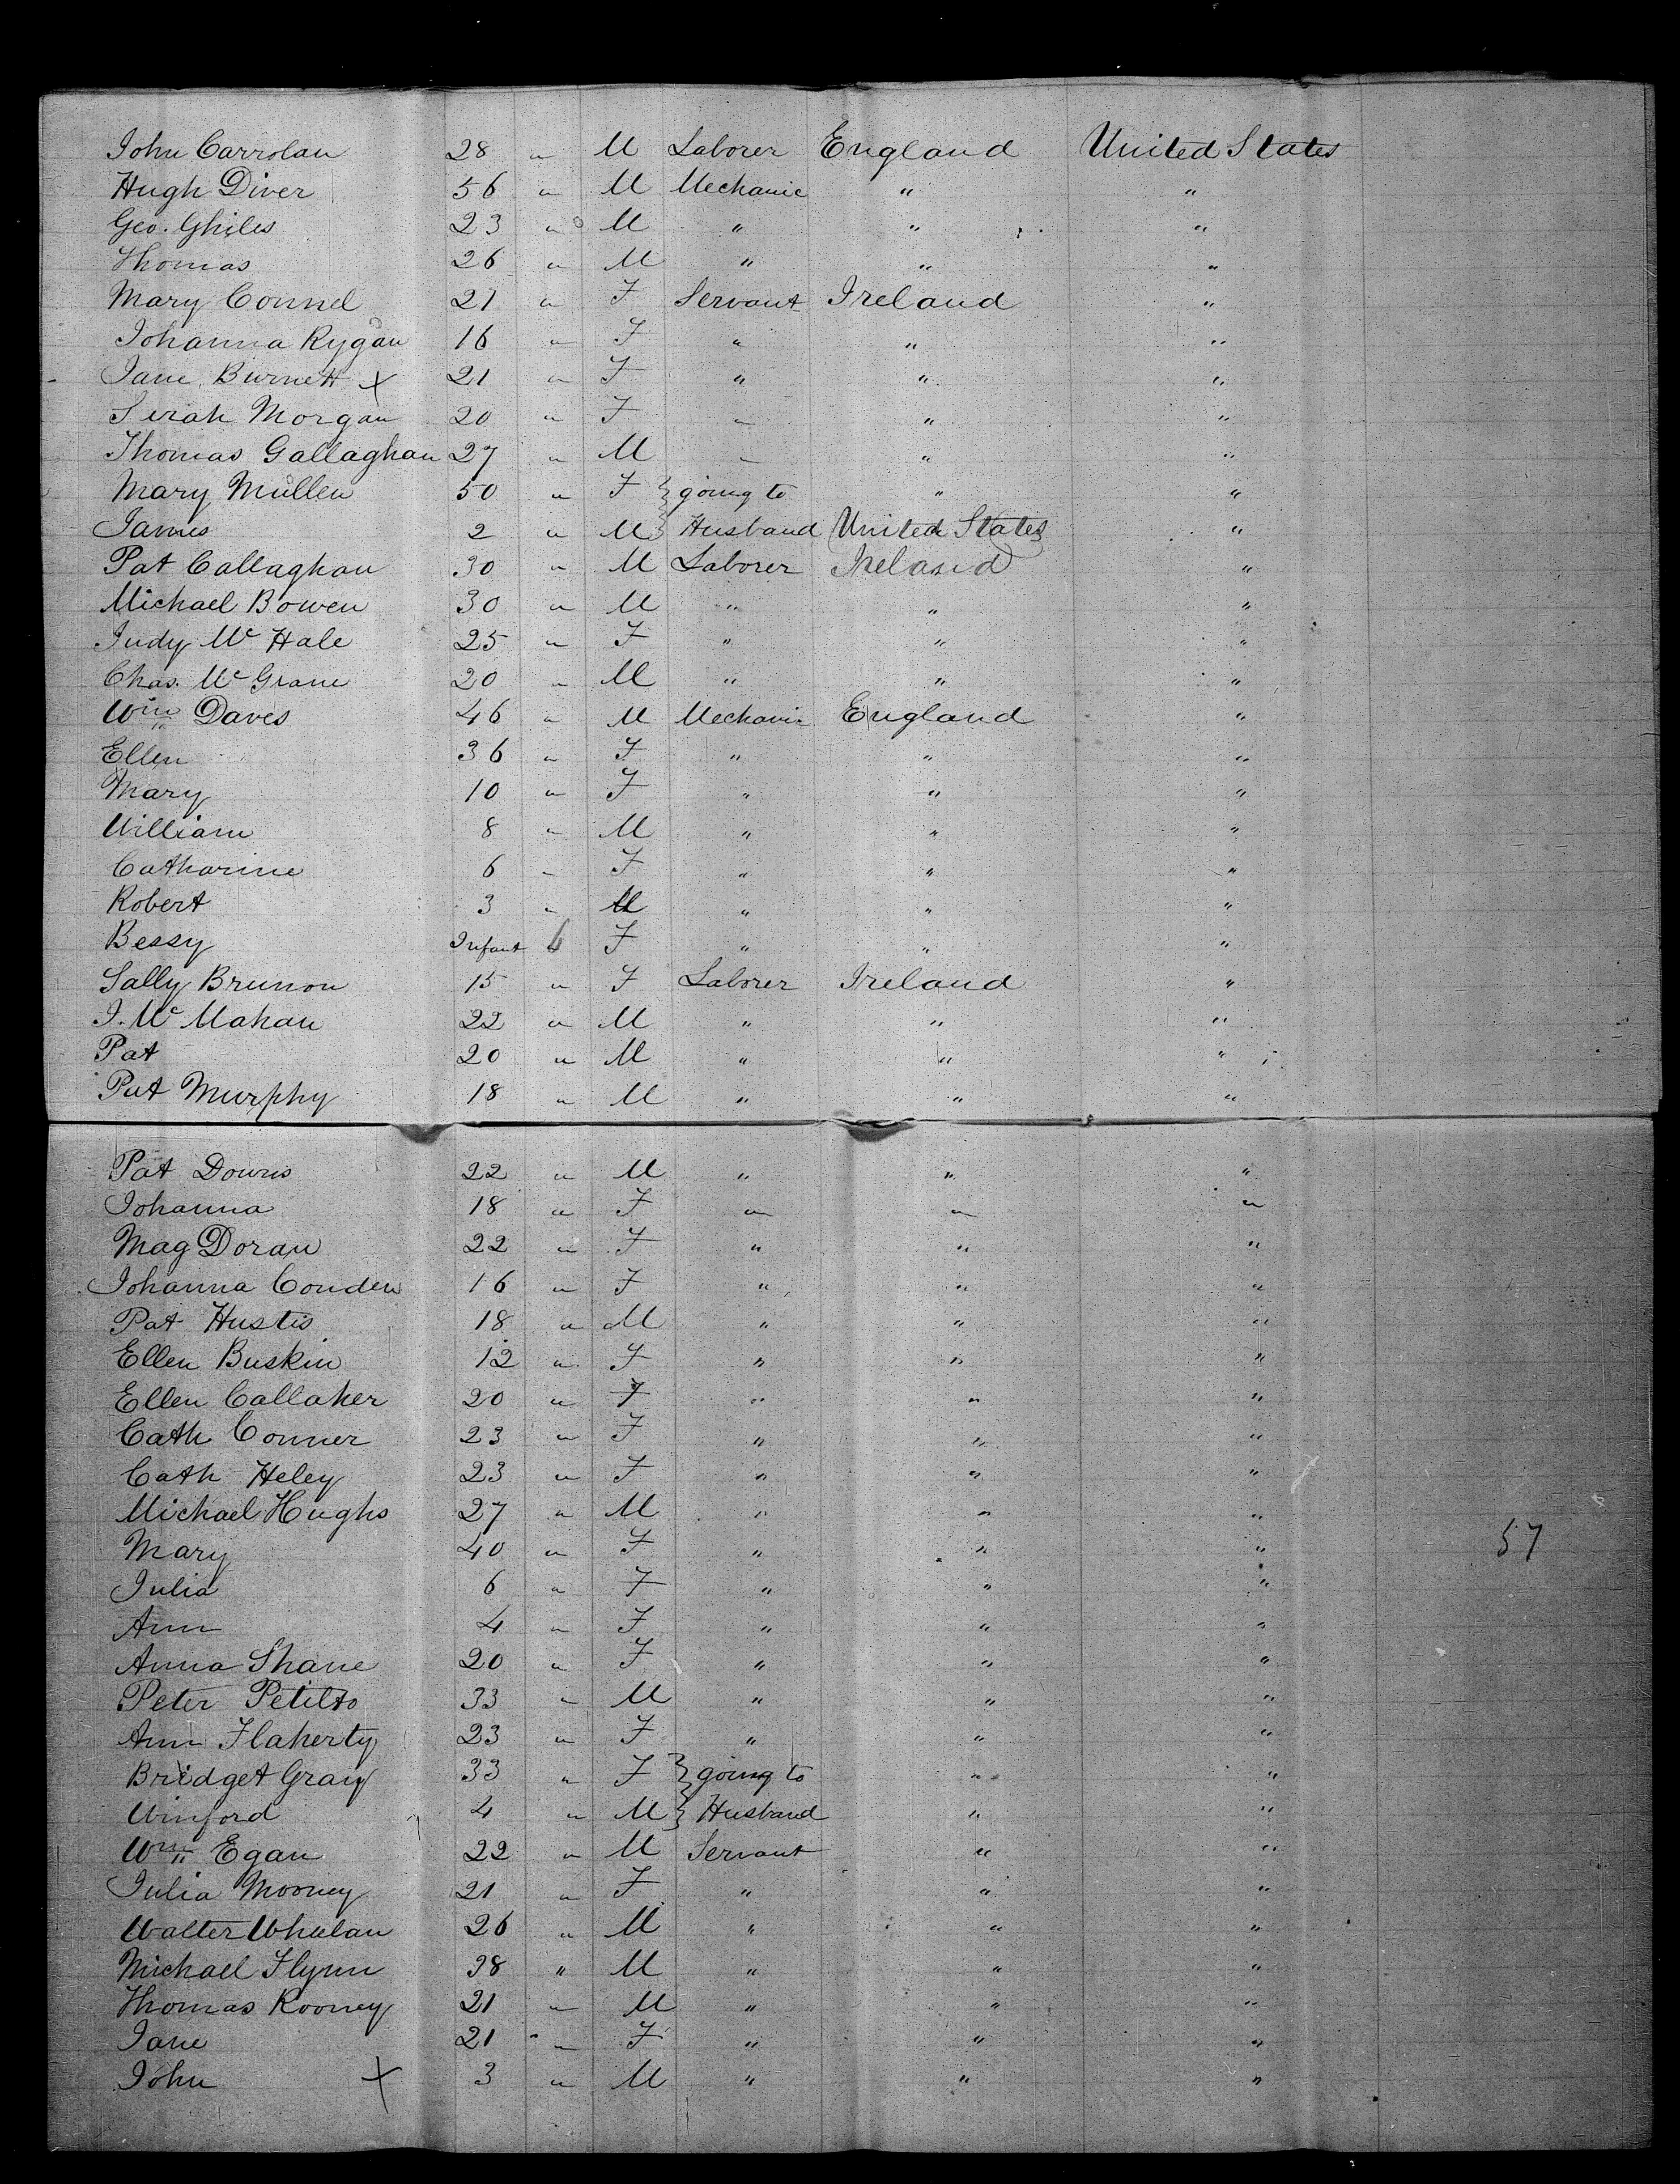 John Carrolan 28 " M Laborer England United States
Hugh Diver 56 " M Mechanic " "
Geo. Ghiles 23 " M " " "
Thomas 26 " M " " "
Mary Connel 21 " F Servant Ireland "
Johanna Rygan 16 " F " " "
Jane Burnett x 21 " F " " "
Serah Morgan 20 " F " " "
Thomas Gallaghan 27 " M " " "
Mary Mullen 50 " F } going to " "
James 2 " M } Husband United States "
Pat Callaghan 30 " M Laborer Ireland "
Michael Bowen 30 " M " " "
Judy Mc Hale 25 " F " " "
Chas. Mc Grane 20 " M " " "
Wm Daves 46 " M Mechanic England "
Ellen 36 " F " " "
Mary 10 " F " " "
William 8 " M " " "
Catharine 6 " F " " "
Robert 3 " M " " "
Bessy Infant 6 F " " "
Sally Brunon 15 " F Laborer Ireland "
J. Mc Mahan 22 " M " " "
Pat 20 " M " " "
Pat Murphy 18 " M " " "
Pat Downs 22 " M " " "
Johanna 18 " F " " "
Mag Doran 22 " F " " "
Johanna Conden 16 " F " " "
Pat Hustis 18 " M " " "
Ellen Buskin 12 " F " " "
Ellen Callaher 20 " F " " "
Cath Conner 23 " F " " "
Cath Heley 23 " F " " "
Michael Hughs 27 " M " " "
Mary 40 " F " " " 57
Julia 6 " F " " "
Ann 4 " F " " "
Anna Shane 20 " F " " "
Peter Petilto 33 " M " " "
Ann Flaherty 23 " F " " "
Bridget Gray 33 " F } going to " "
Winford 4 " M } Husband " "
Wm Egan 22 " M Servant " "
Julia Mooney 21 " F " " "
Walter Whalan 26 " M " " "
Michael Flynn 38 " M " " "
Thomas Rooney 21 " M " " "
Jane 21 " F " " "
John x 3 " M " " "